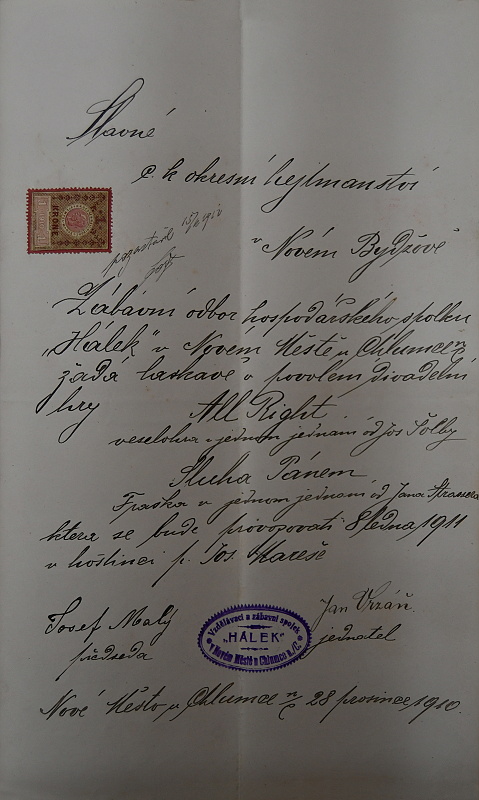 Slavné
c. k. okresní hejtmanství
KRONE
v Novém Bydžově
Zábavní odbor hospodářského spolku
„Hálek" v Novém Městě u Chlumce n/C
žádá laskavě o povolení divadelní
hry All Right
veselohra v jednom jednání od Jos Šolby
Sluha Pánem
Fraška v jednom jednaní od Jana
ktera se bude provozovati 8 ledna 1911
v hostinci p. Jos. Mareše
Josef Malý
předseda
Vzdělávací a zábavní spolek
„HÁLEK"
v Novém Městě u Chlumce n./C.
Jan Vrzáň
jednatel
Nové Město u Chlumce n/C 28 prosince 1910.